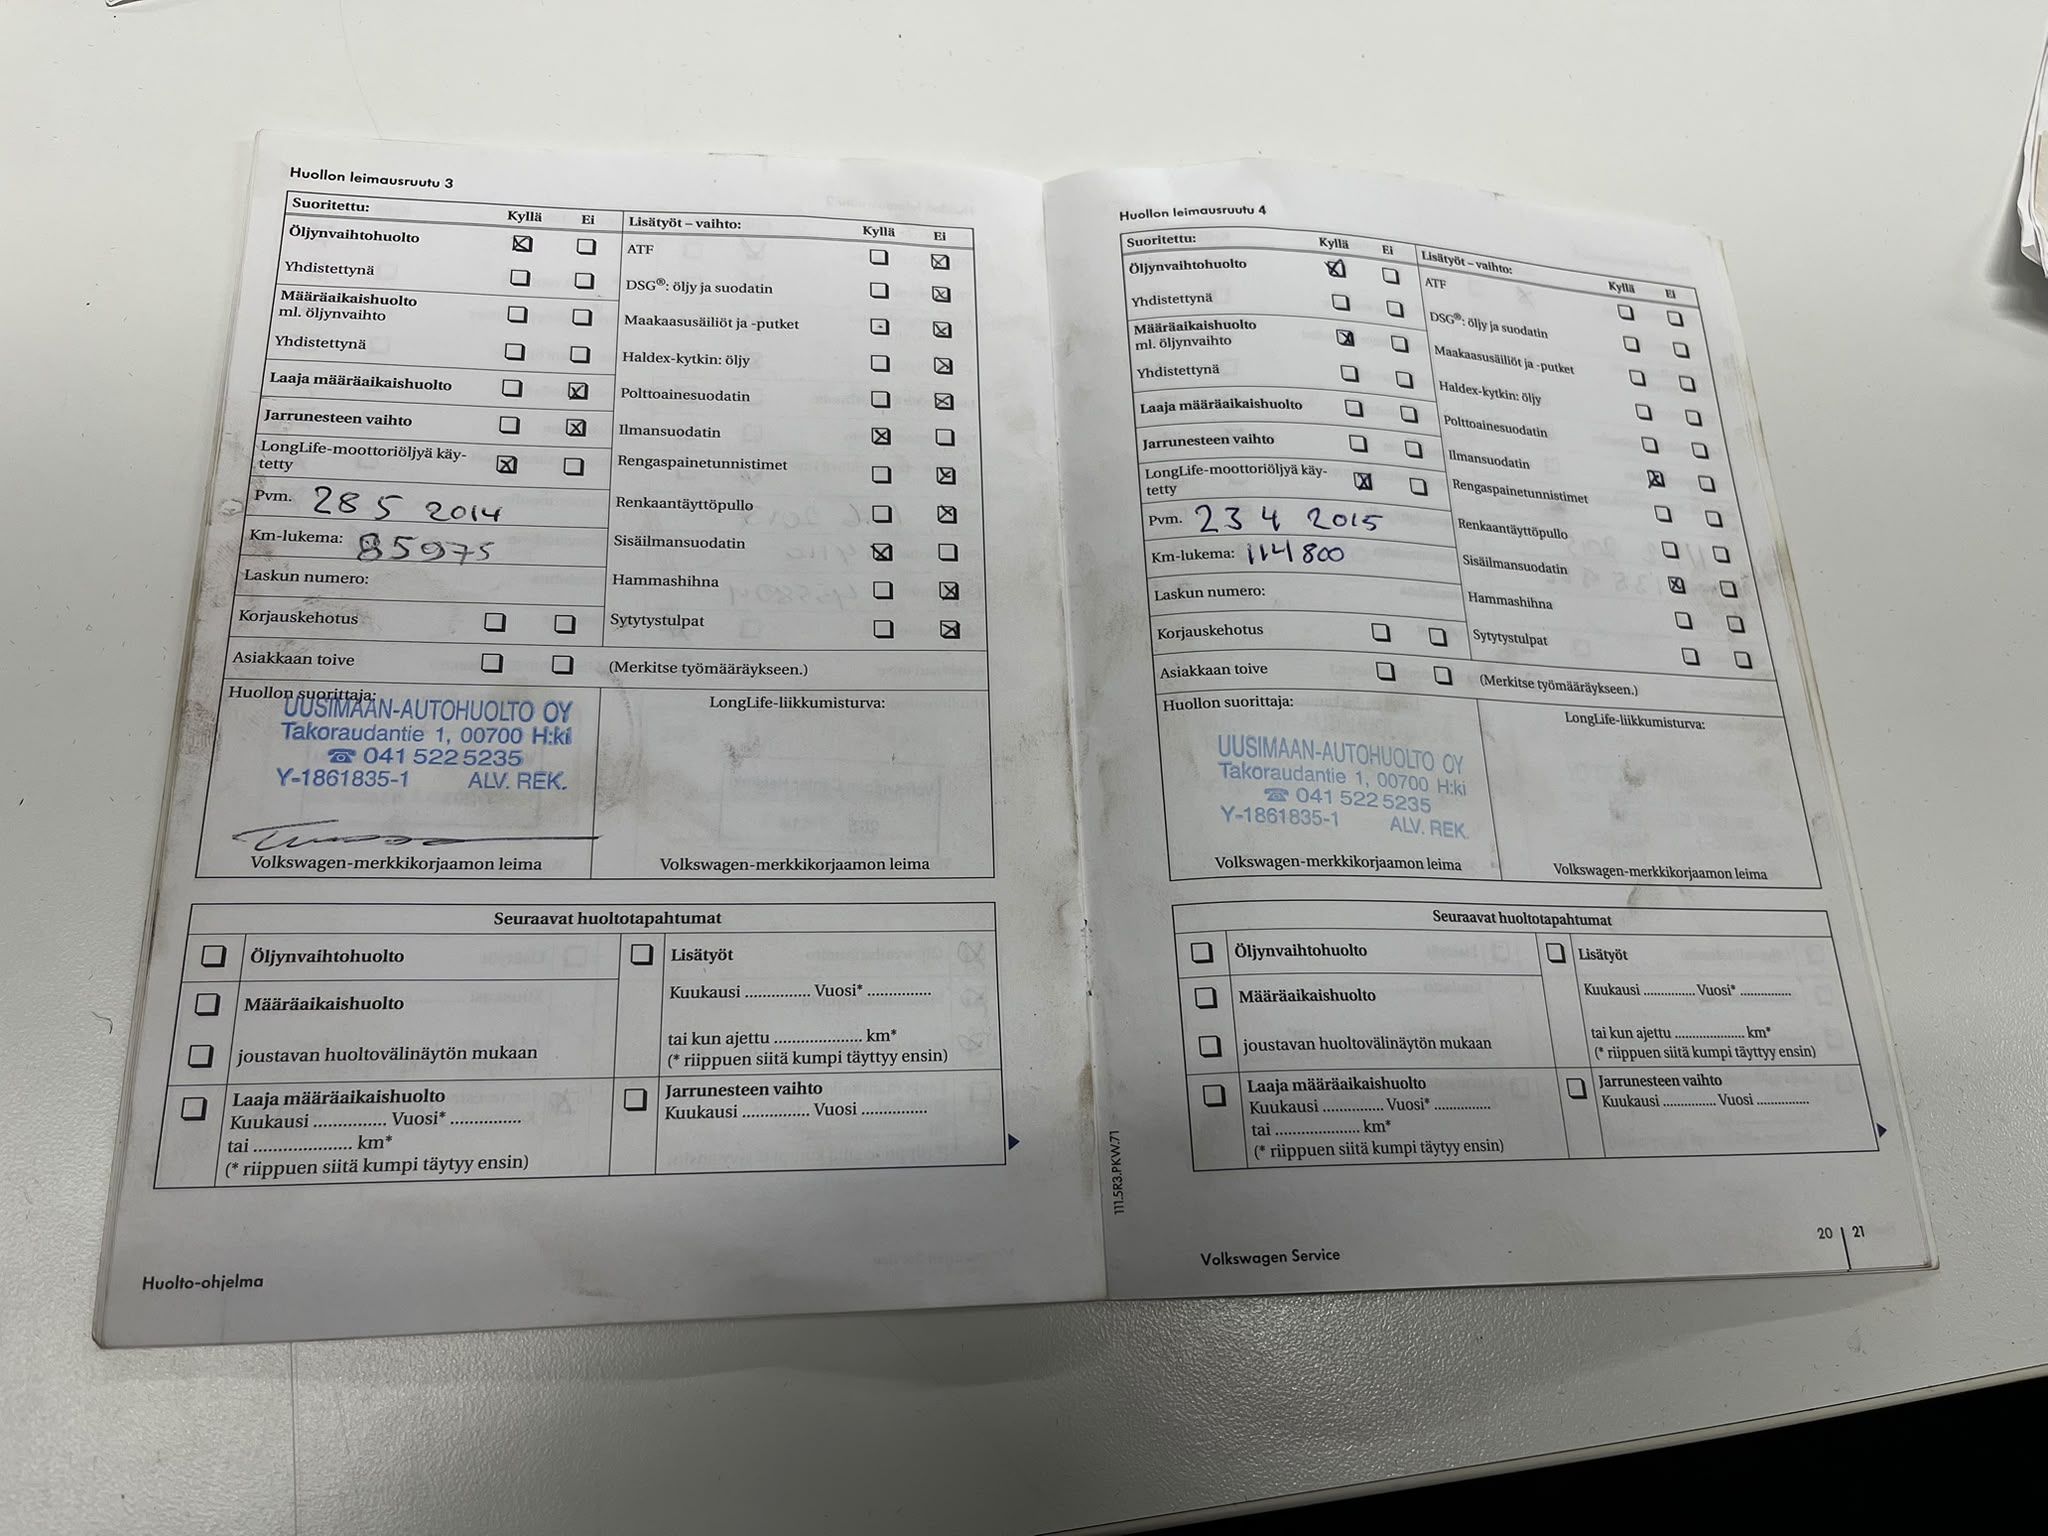 Huollon leimausruutu 3
Suoritettu: Kyllä Ei
Öljynvaihtohuolto
Yhdistettynä
Määräaikaishuolto
ml. öljynvaihto
Yhdistettynä
Laaja määräaikaishuolto
Jarrunesteen vaihto
LongLife-moottoriöljyä käy-
tetty
Pvm. 28 5 2014
Km-lukema: 85975
Laskun numero:
Korjauskehotus
Asiakkaan toive
Lisätyöt – vaihto: Kyllä Ei
ATF
DSG®: öljy ja suodatin
Maakaasusäiliöt ja -putket
Haldex-kytkin: öljy
Polttoainesuodatin
Ilmansuodatin
Rengaspainetunnistimet
Renkaantäyttöpullo
Sisäilmansuodatin
Hammashihna
Sytytystulpat
(Merkitse työmääräykseen.)
Huollon suorittaja:
UUSIMAAN-AUTOHUOLTO OY
Takoraudantie 1, 00700 H:ki
☎ 041 522 5235
Y-1861835-1 ALV. REK.
Volkswagen-merkkikorjaamon leima
LongLife-liikkumisturva:
Volkswagen-merkkikorjaamon leima
Seuraavat huoltotapahtumat
Öljynvaihtohuolto
Määräaikaishuolto
joustavan huoltovälinäytön mukaan
Laaja määräaikaishuolto
Kuukausi ............... Vuosi* ...............
tai .................... km*
(* riippuen siitä kumpi täytyy ensin)
Lisätyöt
Kuukausi .............. Vuosi* ..............
tai kun ajettu ................... km*
(* riippuen siitä kumpi täyttyy ensin)
Jarrunesteen vaihto
Kuukausi .............. Vuosi ..............
Huolto-ohjelma
Huollon leimausruutu 4
Suoritettu: Kyllä Ei
Öljynvaihtohuolto
Yhdistettynä
Määräaikaishuolto
ml. öljynvaihto
Yhdistettynä
Laaja määräaikaishuolto
Jarrunesteen vaihto
LongLife-moottoriöljyä käy-
tetty
Pvm. 23 4 2015
Km-lukema: 114800
Laskun numero:
Korjauskehotus
Asiakkaan toive
Lisätyöt – vaihto: Kyllä Ei
ATF
DSG®: öljy ja suodatin
Maakaasusäiliöt ja -putket
Haldex-kytkin: öljy
Polttoainesuodatin
Ilmansuodatin
Rengaspainetunnistimet
Renkaantäyttöpullo
Sisäilmansuodatin
Hammashihna
Sytytystulpat
(Merkitse työmääräykseen.)
Huollon suorittaja:
UUSIMAAN-AUTOHUOLTO OY
Takoraudantie 1, 00700 H:ki
☎ 041 522 5235
Y-1861835-1 ALV. REK.
Volkswagen-merkkikorjaamon leima
LongLife-liikkumisturva:
Volkswagen-merkkikorjaamon leima
Seuraavat huoltotapahtumat
Öljynvaihtohuolto
Määräaikaishuolto
joustavan huoltovälinäytön mukaan
Laaja määräaikaishuolto
Kuukausi .............. Vuosi* ..............
tai ..................... km*
(* riippuen siitä kumpi täytyy ensin)
Lisätyöt
Kuukausi ............. Vuosi* .............
tai kun ajettu .................. km*
(* riippuen siitä kumpi täyttyy ensin)
Jarrunesteen vaihto
Kuukausi ............. Vuosi .............
111.5R3.PKW.71
Volkswagen Service
20 | 21